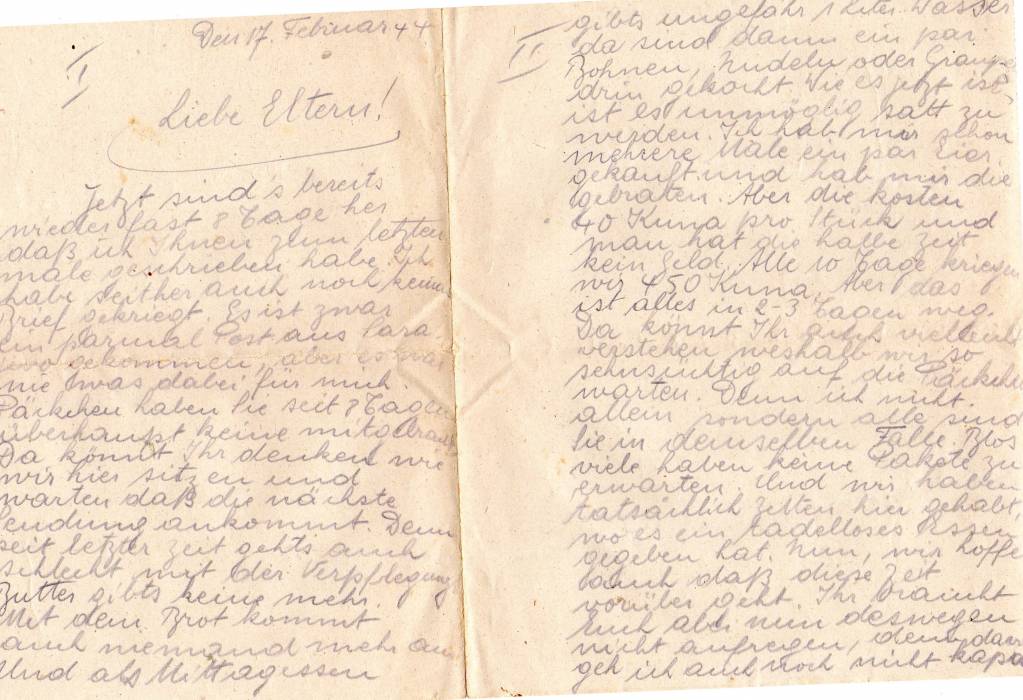 I
Den 17. Februar 44
Liebe Eltern!
Jetzt sind's bereits
wieder fast 8 Tage her
daß ich Ihnen zum letzten
male geschrieben habe. Ich
habe seither auch noch kein
Brief gekriegt. Es ist zwar
ein parmal Post aus Sara
jevo gekommen, aber es war
nie was dabei für mich.
Päckchen haben Sie seit 8 Tagen
überhaupt keine mitgebracht
Da könnt Ihr denken wie
wir hier sitzen und
warten daß die nächste
Sendung ankommt. Denn
seit letzter Zeit gehts auch
schlecht mit der Verpflegung
Butter gibts keine mehr.
Mit dem Brot kommt
auch niemand mehr aus
Und als Mittagessen
II
gibts ungefähr 1 Liter Wasser
da sind dann ein par
Bohnen, Nudeln oder Graupen
drin gekocht. Wie es jetzt ist,
ist es unmöglich satt zu
werden. Ich hab mir schon
mehrere Male ein par Eier
gekauft und hab mir die
gebraten. Aber die kosten
40 Kuna pro Stück und
man hat die halbe Zeit
kein Geld. Alle 10 Tage kriegen
wir 450 Kuna. Aber das
ist alles in 2-3 Tagen weg.
Da könnt Ihr auch vielleicht
verstehen weshalb wir so
sehnsüchtig auf die Päckchen
warten. Denn ich nicht
allein sondern alle sind
sie in demselben Falle. Blos
viele haben keine Pakete zu
erwarten. Und wir haben
tatsächlich Zeiten hier gehabt,
wo es ein tadelloses Essen
gegeben hat. Nun, wir hoffe
auch daß diese Zeit
vorüber geht. Ihr braucht
Euch aber nun deswegen
nicht aufregen, denn davon
geh ich auch noch nicht kapu